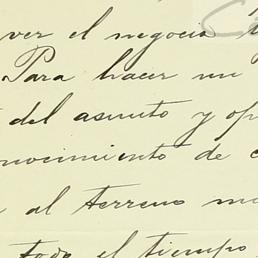 ver el negocio
Para hacer un
del asunto y op
nocimiento de c
al terreno m
todo el tiempo